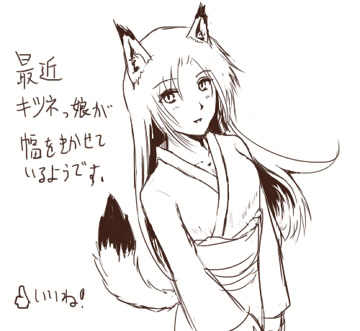 最近
キツネっ娘が
幅をきかせて
いるようです。
いいね!